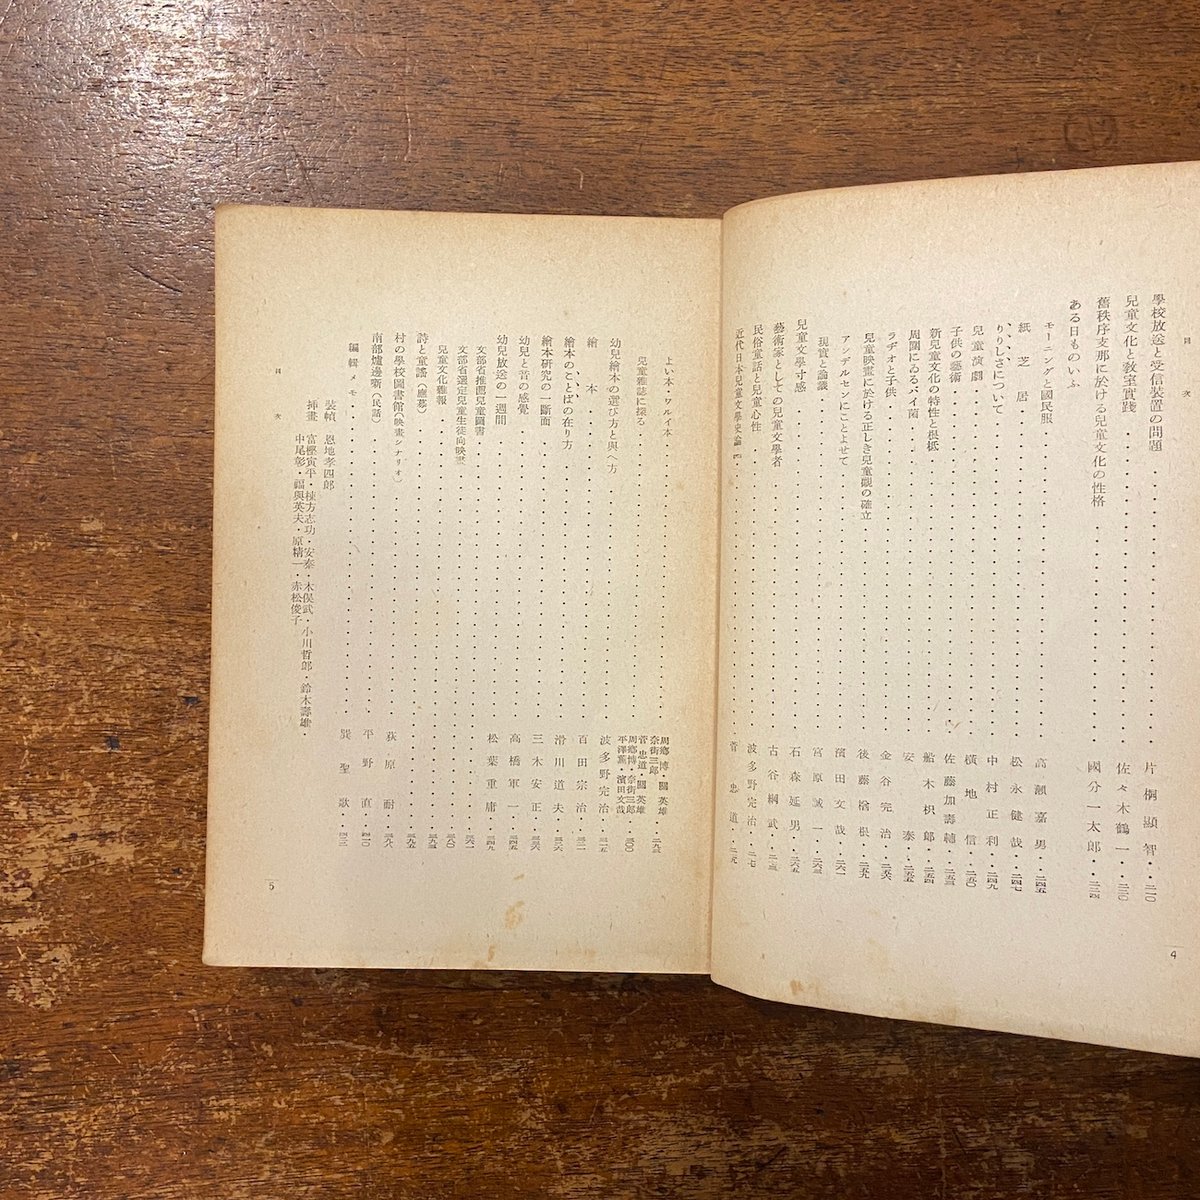 目次
學校放送と受信裝置の問題・・・片桐顯智・二一〇
兒童文化と教室實踐・・・佐々木鶴一・二三〇
舊秩序支那に於ける兒童文化の性格・・・國分一太郎・二三四
ある日ものいふ
モーニングと國民服・・・高瀨嘉男・二四五
紙芝居・・・松永健哉・二四七
りりしさについて・・・中村正利・二四九
兒童演劇・・・横地信・二五〇
子供の藝術・・・佐藤加壽輔・二五三
新兒童文化の特性と根柢・・・船木枳郎・二五四
周圍にゐるバイ菌・・・安泰・二五五
ラヂオと子供・・・金谷完治・二五六
兒童映畫に於ける正しき兒童觀の確立・・・後藤楢根・二五九
アンデルセンにことよせて・・・濱田文哉・二六一
現實と論議・・・宮原誠一・二六三
兒童文學寸感・・・石森延男・二六五
藝術家としての兒童文學者・・・古谷綱武・二七三
民俗童話と兒童心性・・・波多野完治・二七
近代日本兒童文學史論・・・菅忠道・二九
4
よい本・ワルイ本・・・周鄕博・關英雄 奈街三郎・二九三
兒童雜誌に探る・・・菅忠道・關英雄 周鄕博・奈街三郎 平澤薫・濱田文哉・三〇〇
幼兒繪本の選び方と與へ方・・・波多野完治・三一五
繪本・・・百田宗治・三二一
繪本のことばの在り方・・・滑川道夫・三二六
繪本研究の一斷面・・・三木安正・三三六
幼兒と音の感覺・・・高橋軍一・三四五
幼兒放送の一週間・・・松葉重庸・三四九
文部省推薦兒童圖書・・・三六一
文部省選定兒童生徒向映畫・・・三八〇
兒童文化雜報・・・三九三
詩と童謠（應募）・・・三九五
村の學校圖書館（映畫シナリオ）・・・荻原耐・三九八
南部爐邊噺（民話）・・・平野直・四一〇
編輯メモ・・・巽聖歌・四〇三
裝幀 恩地孝四郎
揷畫 富樫寅平・棟方志功・安泰・木俣武・小川哲郎・鈴木壽雄・
中尾彰・福與英夫・原精一・赤松俊子
目次
5